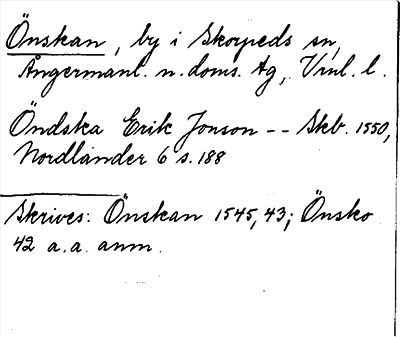 Önskan, by i Skorpeds sn,
Ångermanl. n. doms. tg, Vnl. l.
Öndska Erik Jonson -- Skb. 1550,
Nordlander 6 s. 188
Skrives: Önskan 1545, 43; Önsko
42 a. a. anm.